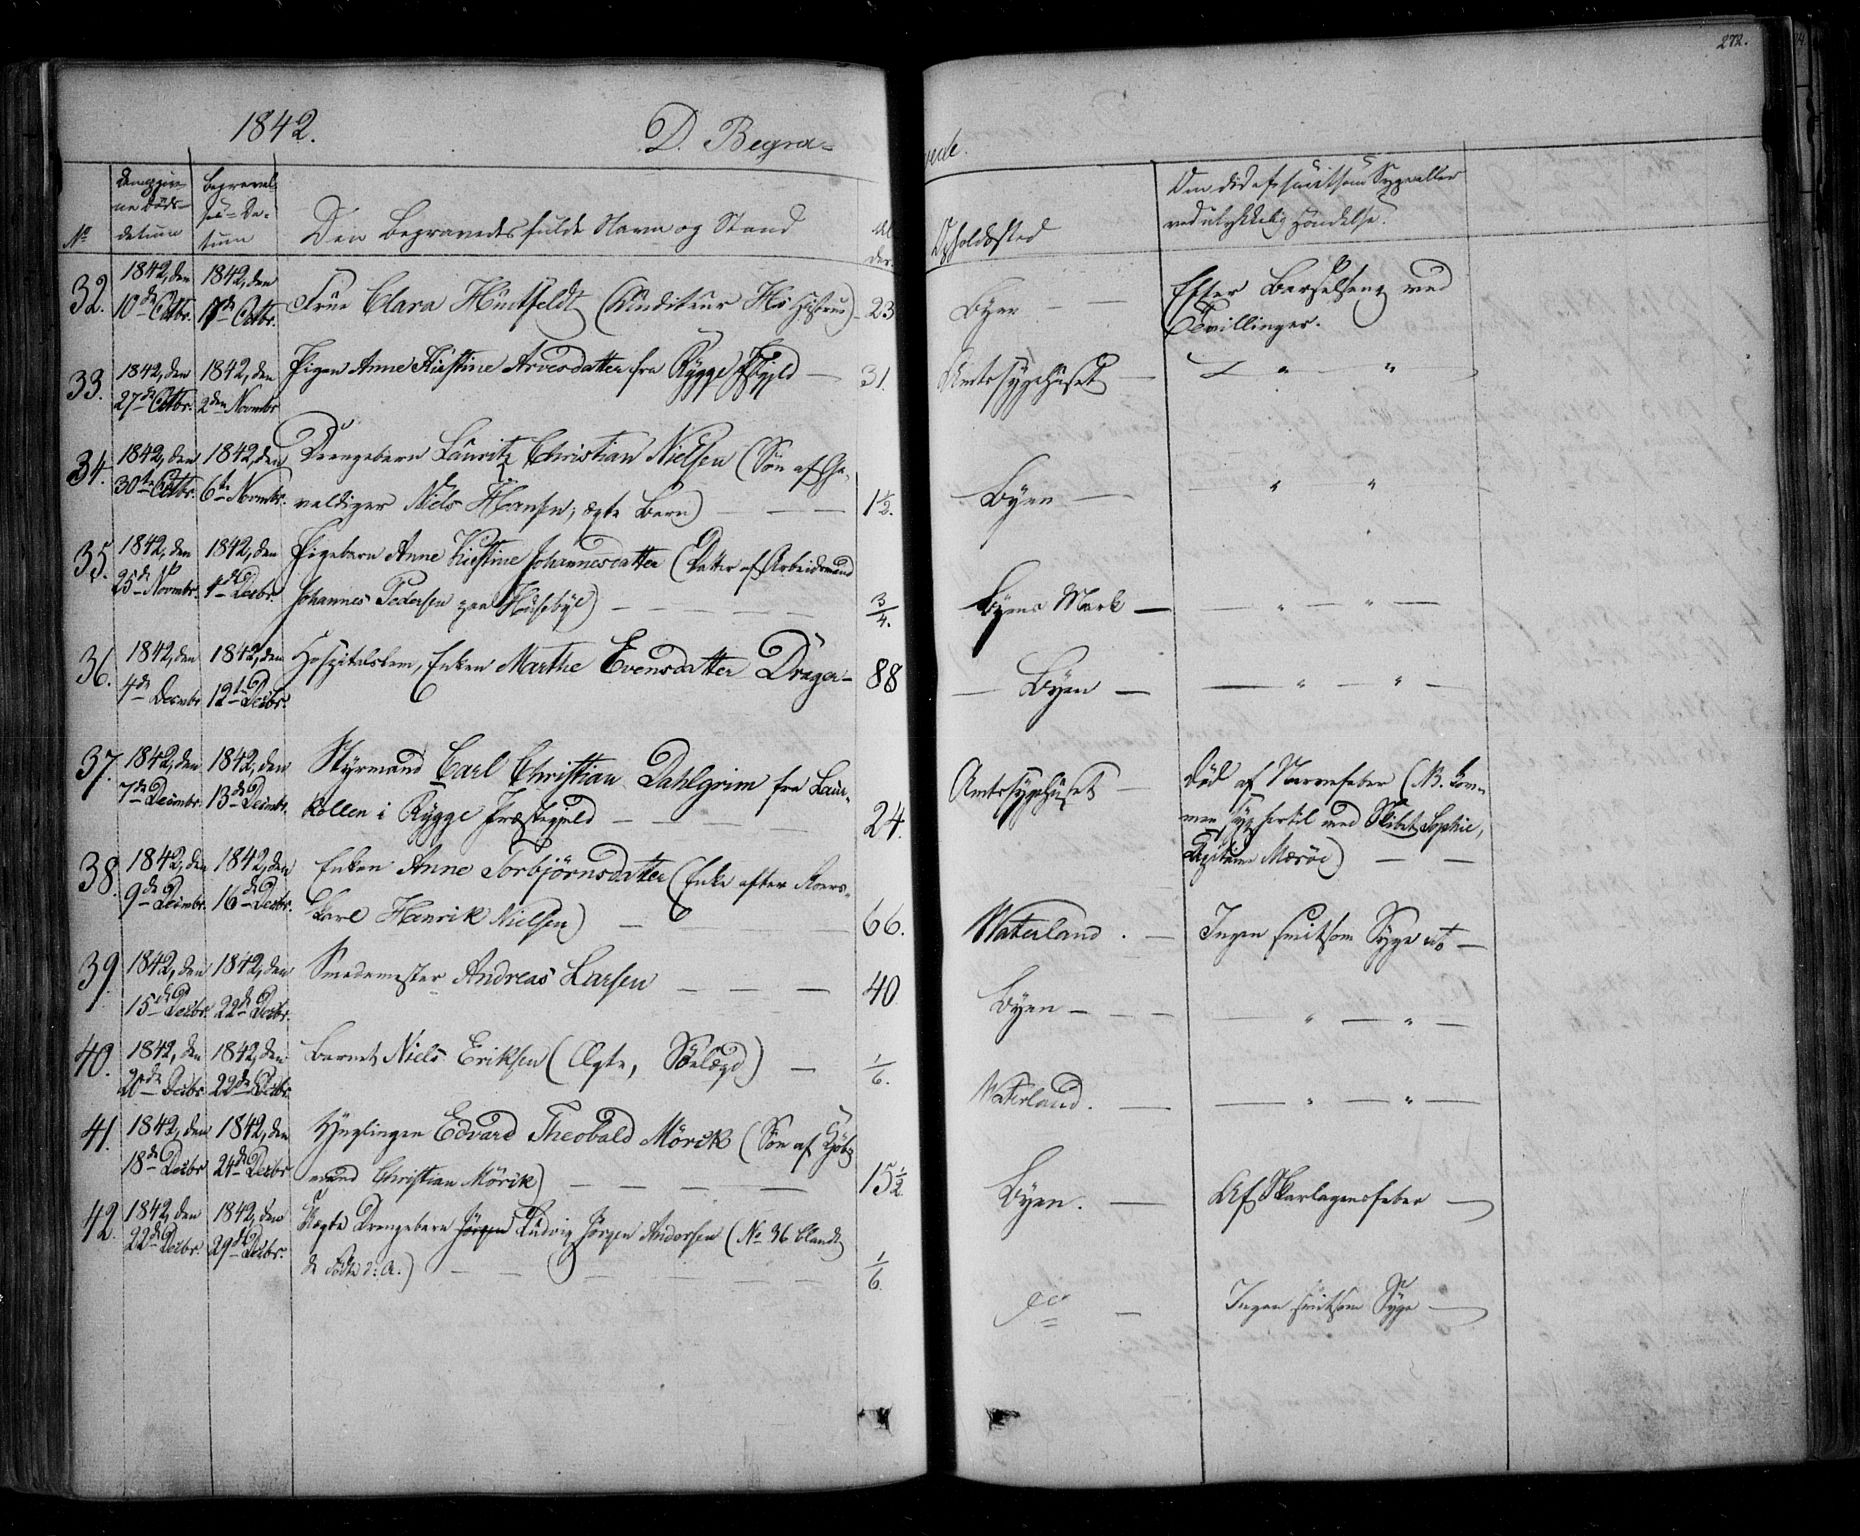 272.
1842.
D. Begra=
vede.
No
Den opgiv=
ne Døds=
datum
Begravel=
ses=Da=
tum
Den Begravedes fulde Navn og Stand
Al
der.
Opholdssted
Om død af smitsom Syge eller
ved ulykkelig Hændelse.
32.
1842, den
10de Octbr.
1842, den
17de Octbr.
Frue Clara Hüitfeldt (Auditeur Hs Hustrue)
23
Byen
Efter Barselseng med
Tvillinger.
33.
1842, den
27de Octbr.
1842, den
2den Novmbr
Pigen Anne Kirstine Arvesdatter fra Rygge Pgjeld
31.
Amtssygehuset
" "
34.
1842, den
30te Octbr.
1842, den
6te Novmbr.
Drengebarn Lauritz Christian Nielsen (Søn af Ge=
valdiger Niels Hansen, ægte Barn)
1½.
Byen
" "
35.
1842, den
25de Novmbr.
1842, den
1ste Decbr.
Pigebarn Anne Kirstine Johannesdatter (Datter af Arbeidsmand
Johannes Pedersen paa Husebye)
3/4.
Byens Mark
" "
36.
1842, den
4de Decmbr
1842, den
12te Decbr.
Hospitalslem, Enken Marthe Evensdatter Drager
88
Byen
" "
37.
1842, den
7de Decmbr.
1842, den
13de Decmbr.
Styrmand Carl Christian Dahlgrim fra Laur=
kollen i Rygge Præstegjeld
24.
Amtssygehuset
død af Nervefeber (NB. kom=
men syg hertil med Skibet Sophie,
Capitaine Mærøe)
38.
1842, den
9de Decmbr.
1842, den
16de Decbr.
Enken Anne Torbjørnsdatter (Enke efter Roers=
karl Henrik Nielsen)
66.
Waterland.
Ingen smitsom Syge etc
39.
1842, den
15de Decbr.
1842, den
22de Decbr.
Smedemester Andreas Larsen
40
Byen
" "
40.
1842, den
20de Decbr
1842, den
22de Decbr.
Barnet Niels Eriksen (Ægte, Sølægd)
1/6.
Waterland.
" "
41.
1842, den
18de Decbr
1842, den
24de Decbr
Ynglingen Edvard Theobald Mörik (Søn af Kjøb=
mand Christian Mörik)
15½
Byen.
Af Skarlagensfeber
42.
1842, den
22de Decbr.
1842, den
29de Decbr.
Uægte Drengebarn Jørgen Ludvig Jørgen Andersen (No 36 blandt
de Fødte d: A.)
1/6
do
Ingen smitsom Syge